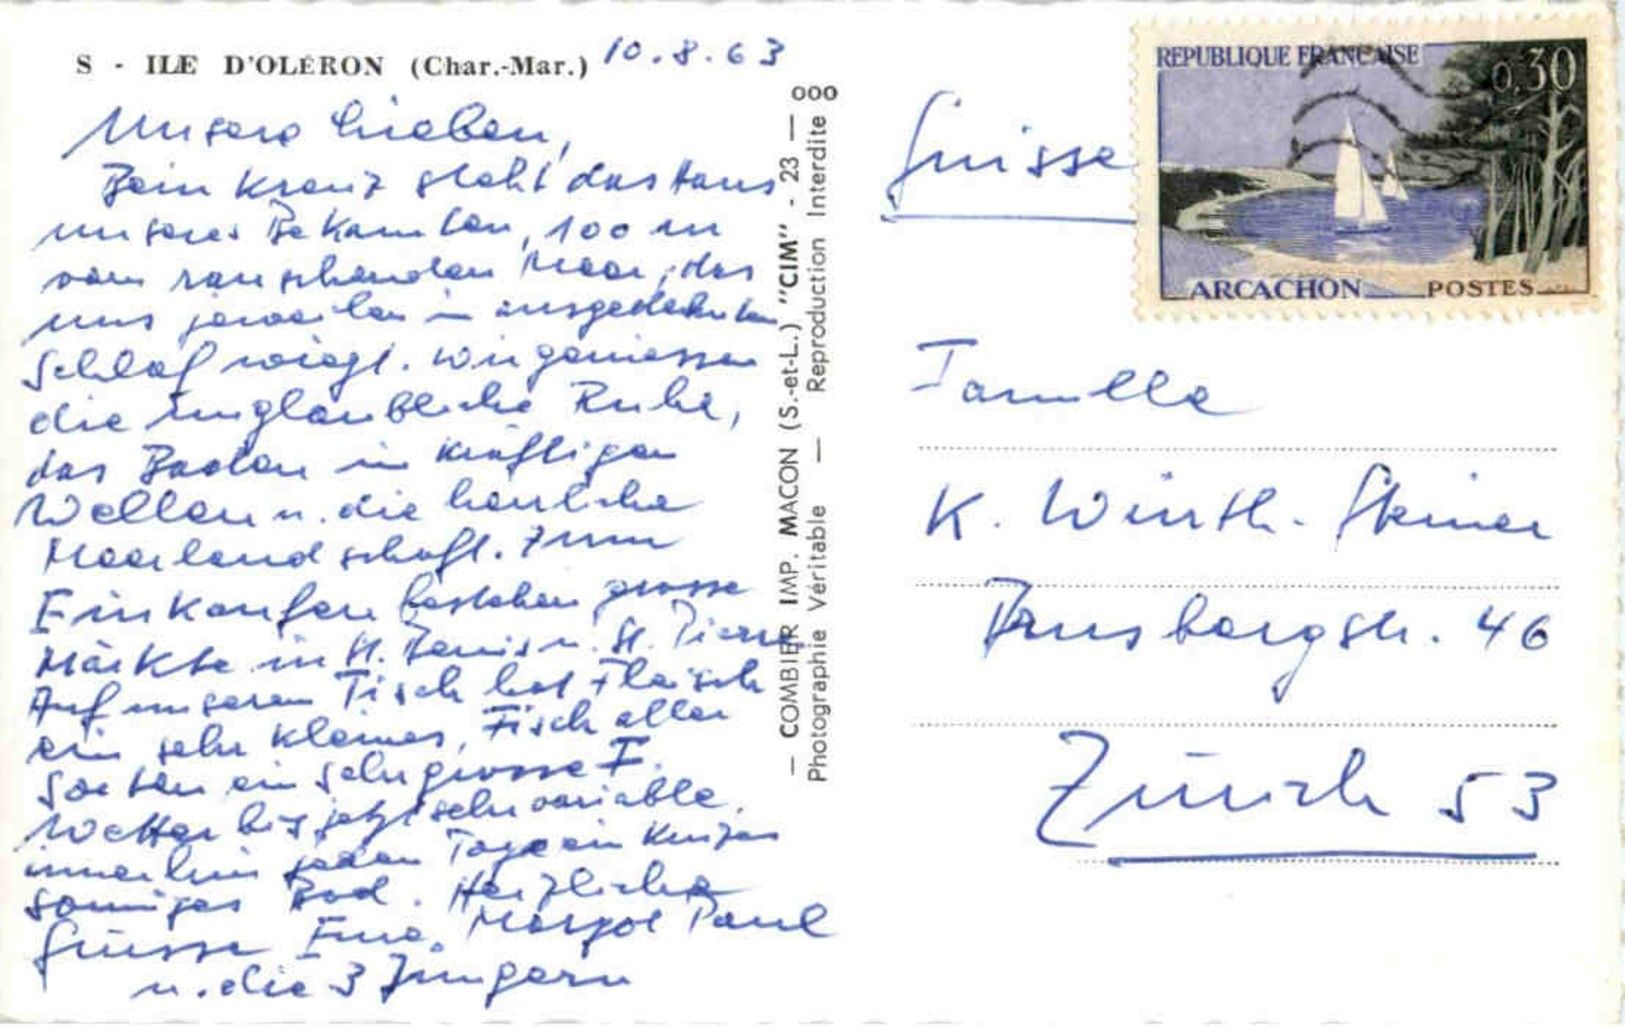 S - ILE D'OLÉRON (Char.-Mar.) 10.8.63
Unsere Lieben,
Beim Kreuz steht das Haus
unserer Bekannten, 100 m
vom rauschenden Meer, das
uns jeweilen in ausgedehnten
Schlaf wiegt. Wir geniessen
die unglaubliche Ruhe,
das Baden in kräftigen
Wellen u. die herrliche
Meerlandschaft. Zum
Einkaufen bestehen grosse
Märkte in St. Denis u. St. Pierre
Auf unserem Tisch hat Fleisch
ein sehr kleines, Fisch aller
Sorten ein sehr grosses F.
Wetter bis jetzt sehr variable,
immerhin jeden Tag ein kurzes
sonniges Bad. Herzliche
Grüsse Eure Margot Paul
u. die 3 Jüngern
— COMBIER IMP. MACON (S.-et-L.) "CIM" - 23 —
Photographie Véritable — Reproduction Interdite
000
Suisse
REPUBLIQUE FRANÇAISE
0,30
ARCACHON POSTES
Familie
K. Würth-Steiner
46
Zürich 53